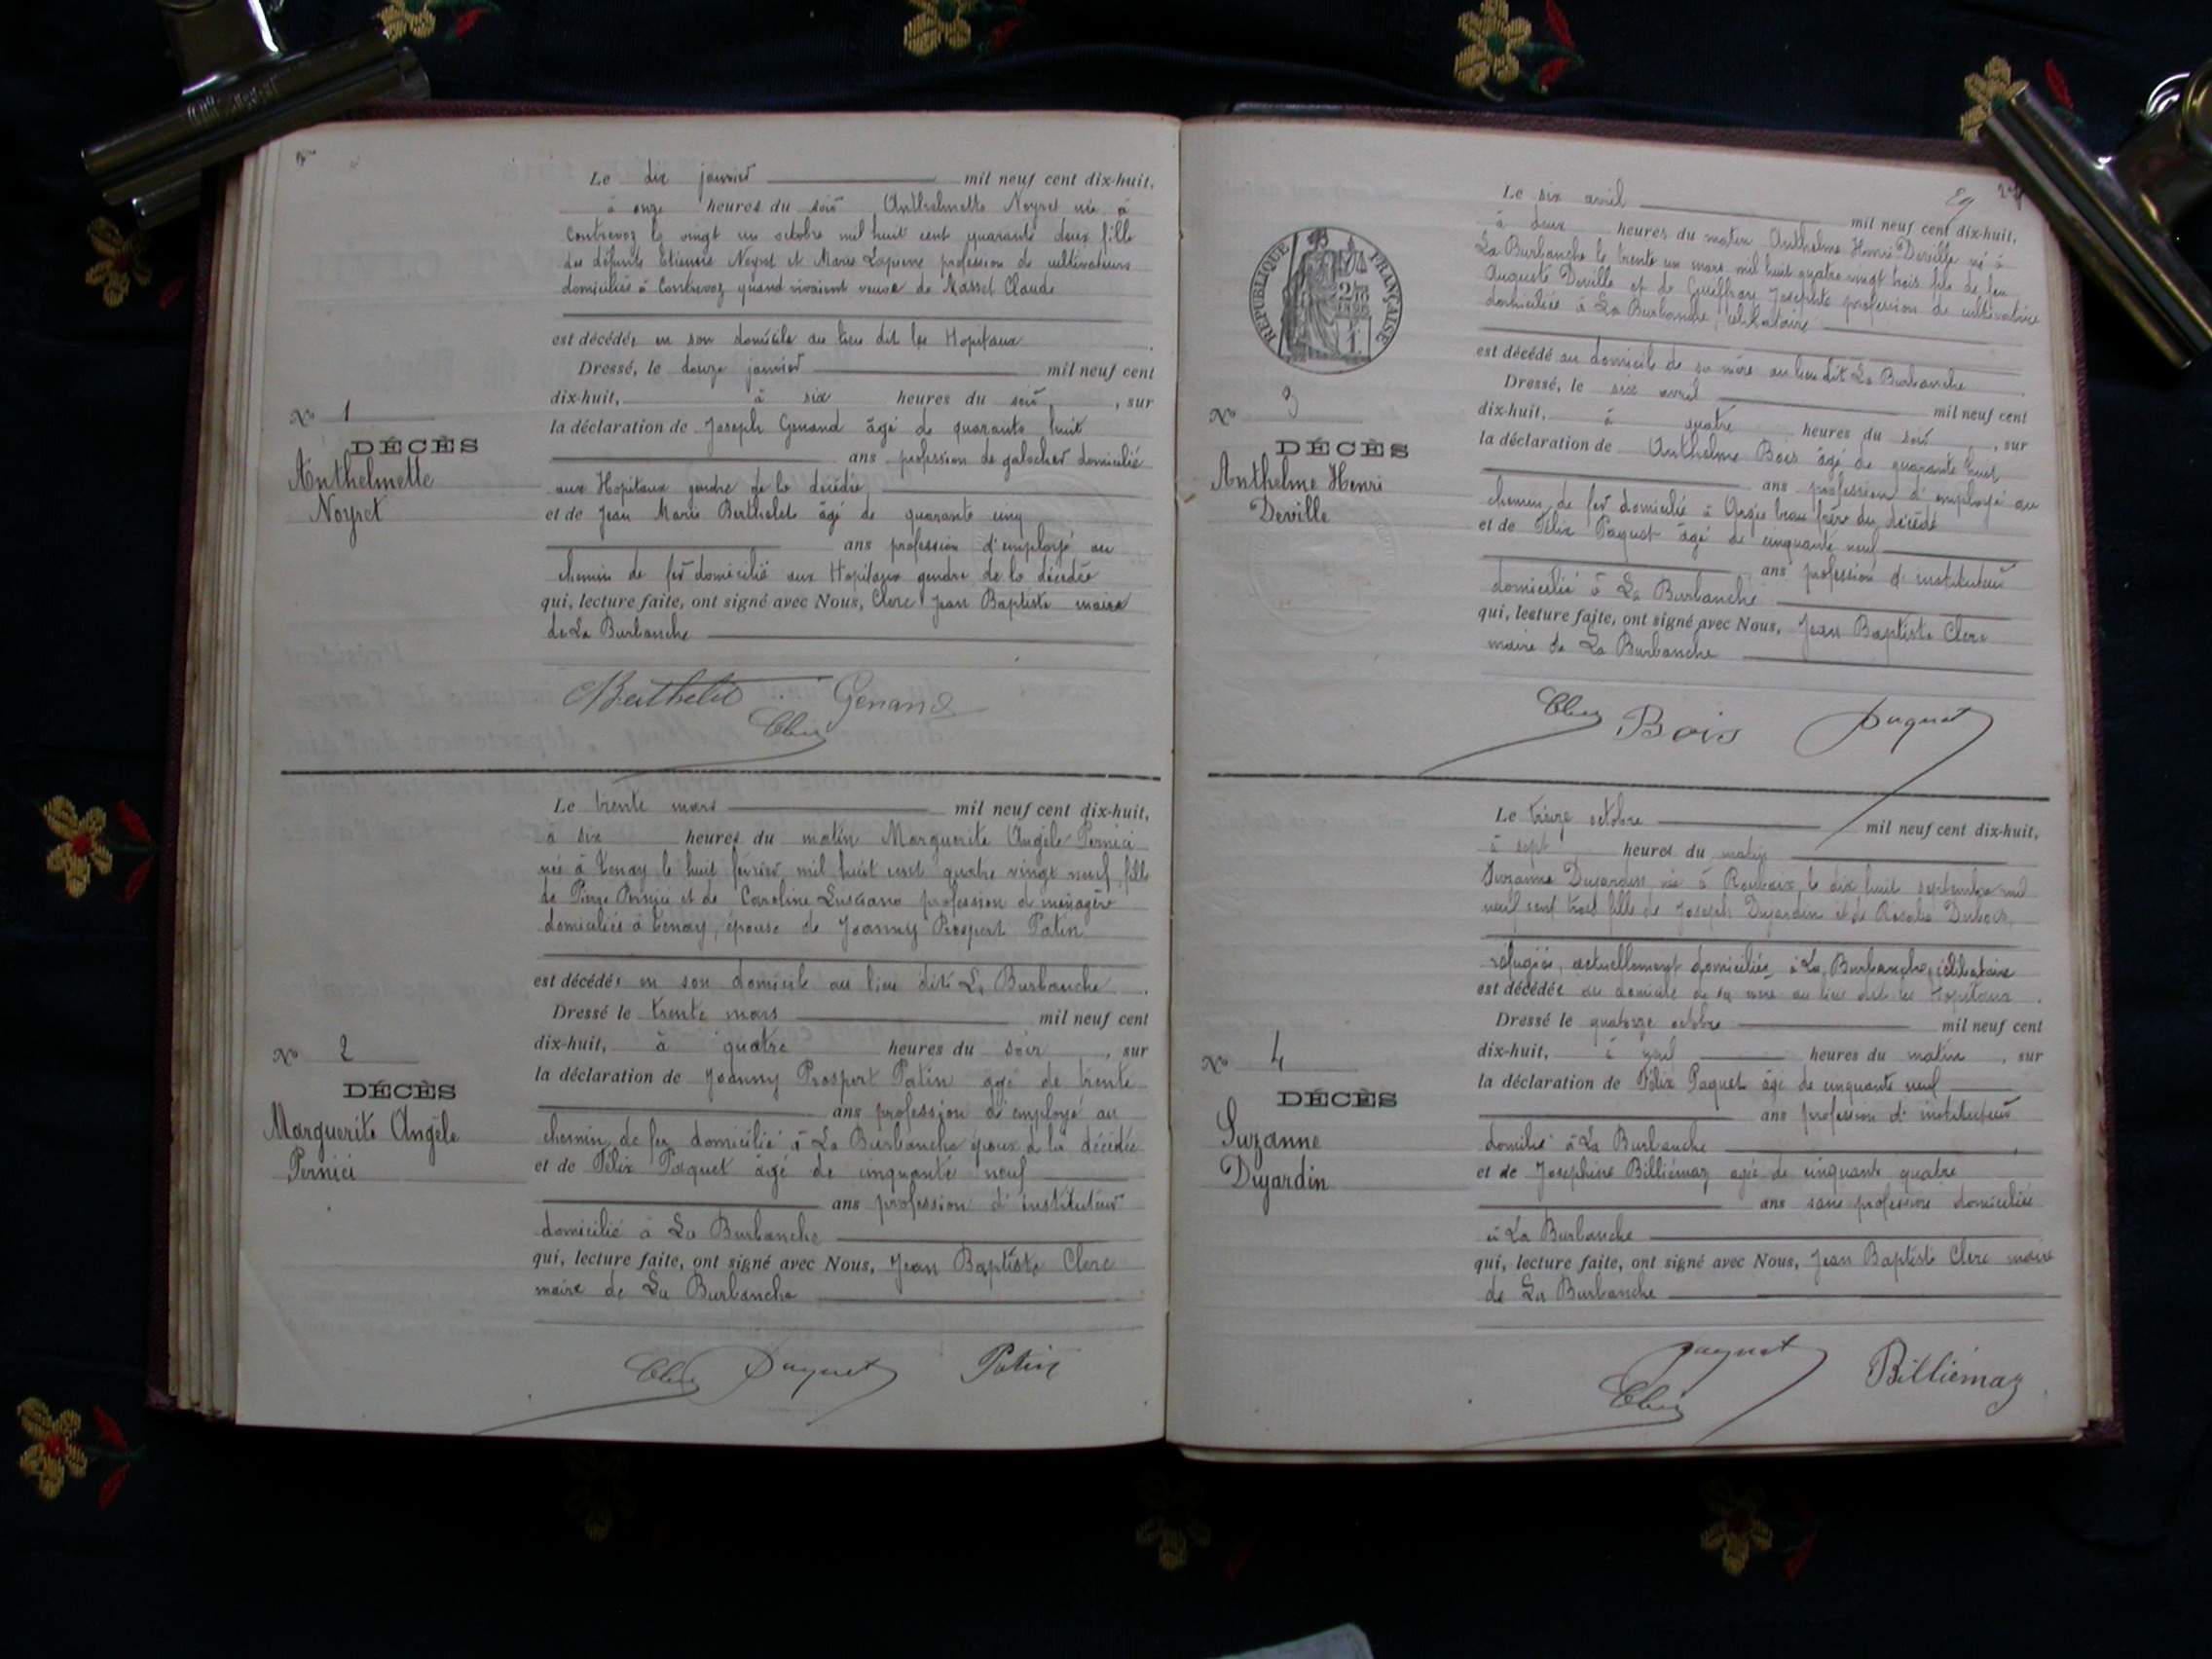 Le dix janvier mil neuf cent dix-huit,
à onze heures du soir Anthelmette Neyret née à
Contrevoz le vingt un octobre mil huit cent quarante deux fille
des défunts Etienne Neyret et Marie Lapierre profession de cultivateurs
domiciliés à Contrevoz quand vivaient veuve de Masset Claude
est décédée en son domicile au lieu dit les Hopitaux
Dressé, le douze janvier mil neuf cent
dix-huit, à six heures du soir, sur
Nº 1
DÉCÈS
Anthelmette
Noyret
la déclaration de Joseph Genand âgé de quarante huit
ans profession de galocher domicilié
aux Hopitaux gendre de la décédée
et de Jean Marie Berthelet âgé de quarante cinq
ans profession d'employé au
chemin de fer domicilié aux Hopitaux gendre de la décédée
qui, lecture faite, ont signé avec Nous, Clerc Jean Baptiste maire
de La Burbanche
Berthelet Genand
Clerc
Le trente mars mil neuf cent dix-huit,
à six heures du matin Marguerite Angèle Pernici
née à Tenay le huit février mil huit cent quatre vingt neuf fille
de Pierre Pernici et de Caroline profession de ménagère
domiciliés à Tenay, épouse de Joanny Prospert Patin
est décédée en son domicile au lieu dit La Burbanche.
Dressé le trente mars mil neuf cent
dix-huit, à quatre heures du soir, sur
Nº 2
DÉCÈS
Marguerite Angèle
Pernici
la déclaration de Joanny Prospert Patin âgé de trente
ans profession d'employé au
chemin de fer domicilié à La Burbanche époux de la décédée
et de Félix Paquet âgé de cinquante neuf
ans profession d'instituteur
domicilié à La Burbanche
qui, lecture faite, ont signé avec Nous, Jean Baptiste Clerc
maire de La Burbanche
Clerc Paquet Patin
29
RÉPUBLIQUE FRANÇAISE
Le six avril mil neuf cent dix-huit,
à deux heures du matin Anthelme Henri Derville né à
La Burbanche le trente un mars mil huit quatre vingt trois fils de feu
Auguste Derville et de Josephte profession de cultivatrice
domiciliée à La Burbanche, célibataire
est décédé au domicile de sa mère au lieu dit La Burbanche
Dressé, le six avril mil neuf cent
dix-huit, à quatre heures du soir, sur
Nº 3
DÉCÈS
Anthelme Henri
Derville
la déclaration de Anthelme Bois âgé de quarante huit
ans profession d'employé au
chemin de fer domicilié à beau frère du décédé
et de Félix Paquet âgé de cinquante neuf
ans profession d'instituteur
domicilié à La Burbanche
qui, lecture faite, ont signé avec Nous, Jean Baptiste Clerc
maire de La Burbanche
Clerc Bois Paquet
Le treize octobre mil neuf cent dix-huit,
à sept heures du matin
Suzanne Dujardin née à Roubaix le dix huit septembre mil
neuf cent trois fille de Joseph Dujardin et de Rosalie Dubois,
réfugiés, actuellement domiciliés à La Burbanche, célibataire
est décédée au domicile de sa mère au lieu dit les Hopitaux.
Dressé le quatorze octobre mil neuf cent
dix-huit, à neuf heures du matin, sur
Nº 4
DÉCÈS
Suzanne
Dujardin
la déclaration de Félix Paquet âgé de cinquante neuf
ans profession d'instituteur
domilié à La Burbanche
et de Josephine Billiémaz agé de cinquante quatre
ans sans profession domiciliée
à La Burbanche
qui, lecture faite, ont signé avec Nous, Jean Baptiste Clerc maire
de La Burbanche
Paquet Billiémaz
Clerc